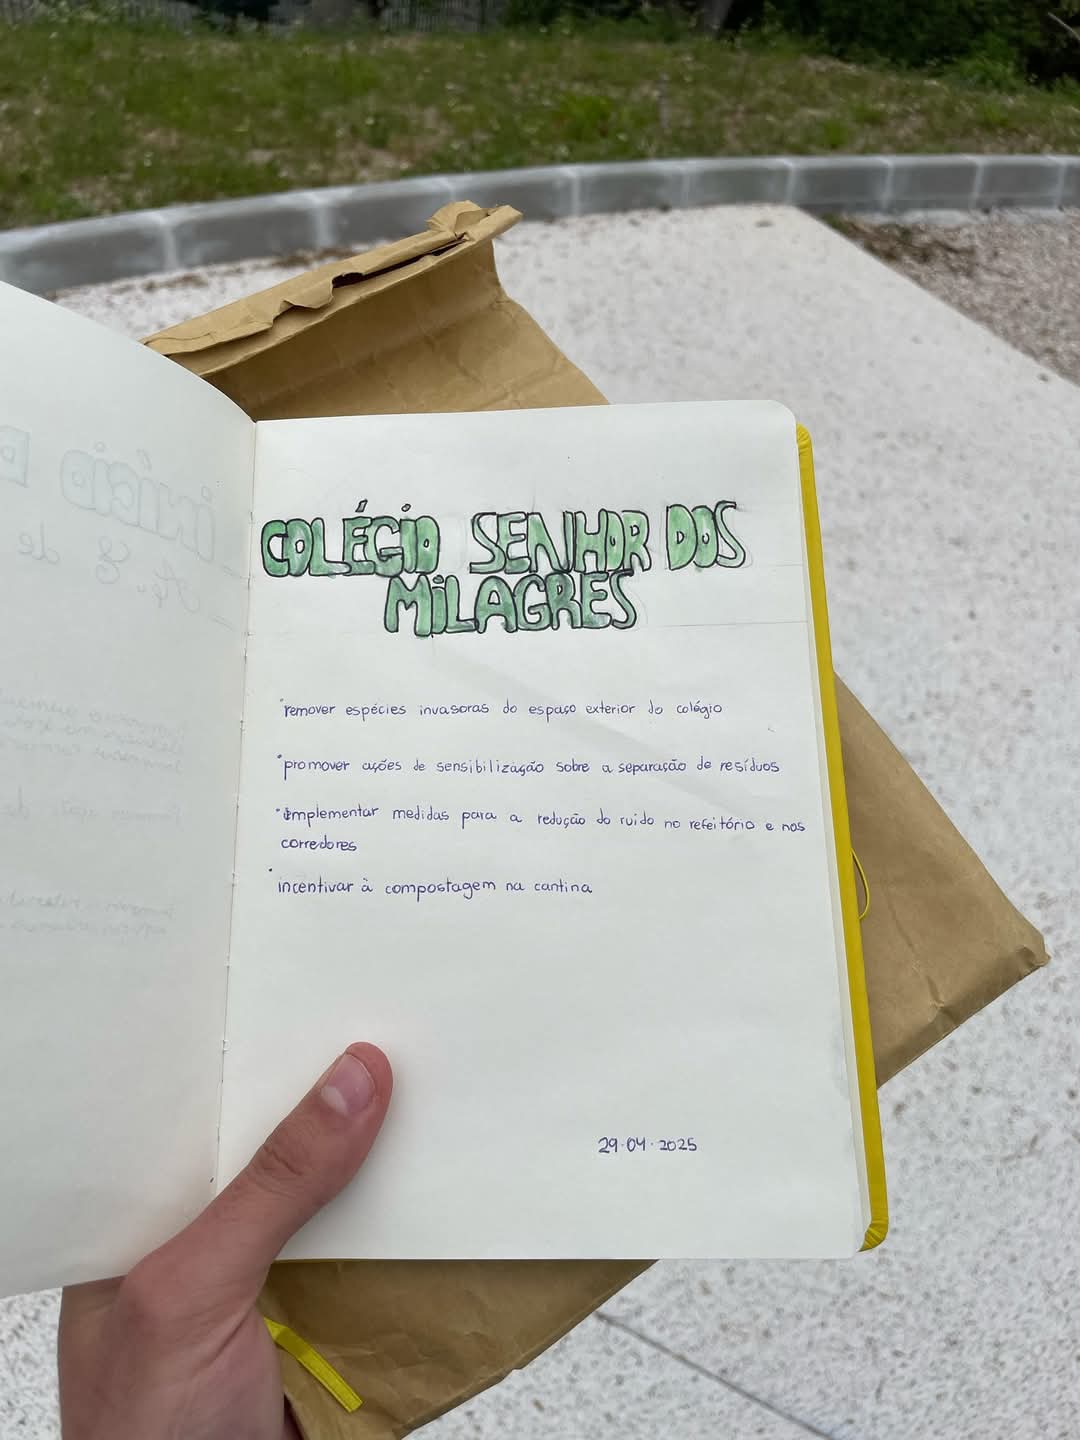 COLÉGIO SENHOR DOS
MILAGRES
•remover espécies invasoras do espaço exterior do colégio
•promover ações de sensibilização sobre a separação de resíduos
•implementar medidas para a redução do ruido no refeitório e nos
corredores
•incentivar à compostagem na cantina
29·04·2025
INÍCIO
de